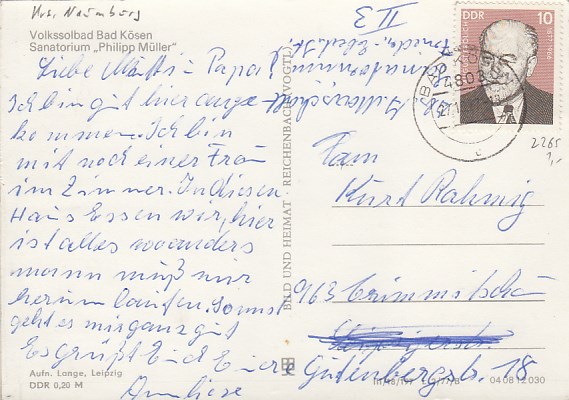 Krs. Naumburg
Volkssolbad Bad Kösen
Sanatorium „Philipp Müller"
Liebe Mutti u. Papa!
Ich bin gut hier ange-
kommen. Ich bin
mit noch einer Frau
im Zimmer. In diesen
Haus Essen wir, hier
ist alles wo anders
mann muß nur
herum laufen. Sonst
geht es mir ganz gut
Es grüßt Euch Eure
Annliese
Aufn. Lange, Leipzig
DDR 0,20 M
BILD UND HEIMAT · REICHENBACH (VOGTL)
II 3
DDR 10
BAD KÖSEN
4803
2265
1,-
Fam
Kurt Rahmig
963 Crimmitschau
Gutenbergstr. 18
04 08 12 030